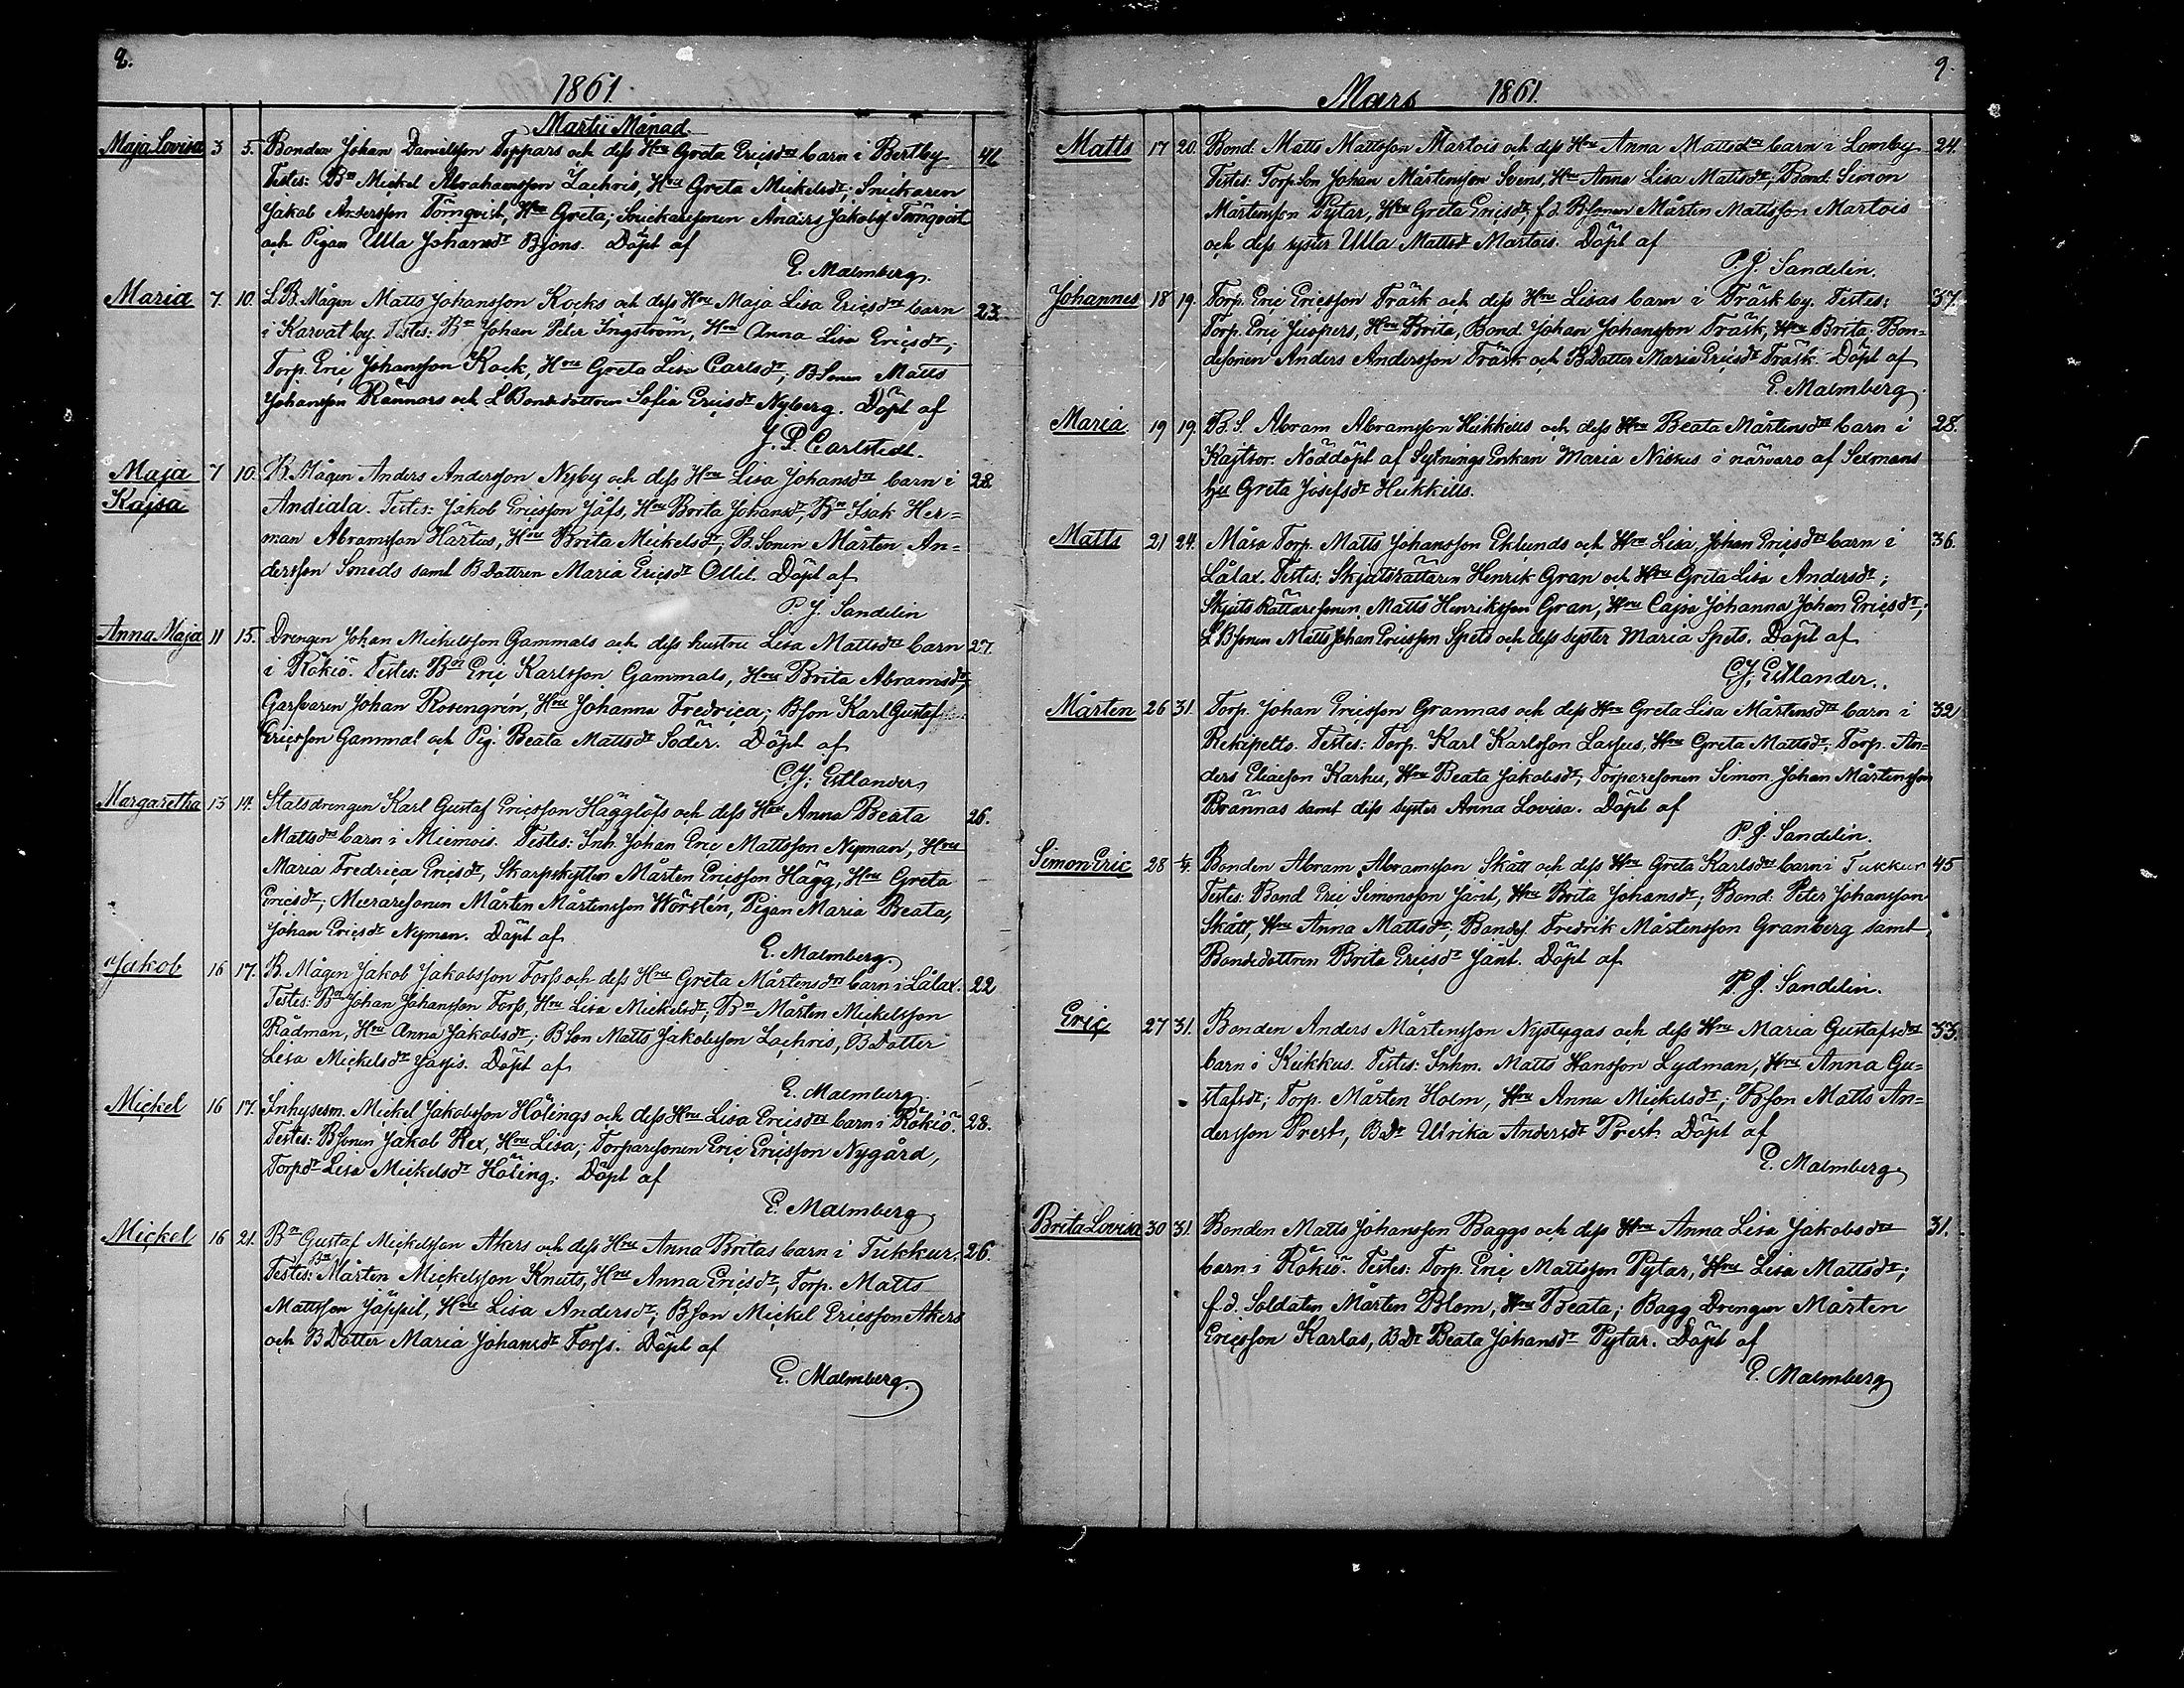 9.
1861.
Martii Månad.
Maja Lovisa 3 5. Bonden Johan Danielsson Toppars och dess Hru Greta Ericsdrs barn i Bertby 41
Testes: Bn Mickel Abrahamsson Lachris, Hru Greta Mickelsdr; Snickaren
Jakob Andersson Törnqvist, Hru Greta; Snickaresonen Anders Jakobss Törnqvist
och Pigan Ulla Johansdr Bjons. Döpt af
E. Malmberg.
Maria 7. 10. L.B. Mågen Matts Johansson Kocks och dess Hru Maja Lisa Ericsdrs barn 23.
i Karvat by. Testes: Bn Johan Peter Ingström, Hru Anna Lisa Ericsdr;
Torp. Eric Johansson Kock, Hru Greta Lisa Carlsdr; B Sonen Matts
Johansson Rännars och L Bondedottren Sofia Ericsdr Nyberg. Döpt af
J. P. Carlstedt.
Maja 7 10. B. Mågen Anders Andersson Nyby och dess Hru Lisa Johansdrs barn i 28.
Kajsa Andiala. Testes: Jakob Ericsson Jåfs, Hru Brita Johansdr, Bn Isak Her=
man Abramsson Härtus, Hru Brita Mickelsdr; B. Sonen Mårten An=
dersson Smeds samt B Dottren Maria Ericsdr Ollil. Döpt af
P. J. Sandelin
Anna Maja 11 15. Drengen Johan Mickelsson Gammals och dess hustru Lisa Mattsdrs barn 27.
i Rökiö. Testes: Bn Eric Karlsson Gammals, Hru Brita Abramsdr,
Garfvaren Johan Rosengrén, Hru Johanna Fredrica; Bson Karl Gustaf
Ericsson Gammal och Pig. Beata Mattsdr Söder. Döpt af
C. J. Estlander
Margaretha 13 14. Stalsdrengen Karl Gustaf Ericsson Hägglöfs och dess Hru Anna Beata 26.
Mattsdrs barn i Miemois. Testes: Inh. Johan Eric Mattsson Nyman, Hru
Maria Fredrica Ericsdr, Skarpskytten Mårten Ericsson Hägg, Hru Greta
Ericsdr, Muraresonen Mårten Mårtensson Hörstén, Pigan Maria Beata,
Johan Ericsdr Nyman. Döpt af
E. Malmberg.
Jakob 16 17. B. Mågen Jakob Jakobsson Forss och dess Hru Greta Mårtensdrs barn i Lålax. 22
Testes: Bn Johan Johansson Forss, Hru Lisa Mickelsdr; Bn Mårten Mickelsson
Rådman, Hru Anna Jakobsdr; B Son Matts Jakobsson Lachris, B Dotter
Lisa Mickelsdr Jaspis. Döpt af
E. Malmberg.
Mickel 16 17. Inhysesm. Mickel Jakobsson Hölings och dess Hru Lisa Ericsdrs barn i Rökiö. 28.
Testes: B Sonen Jakob Rex, Hru Lisa; Torparesonen Eric Ericsson Nygård,
Torpdr Lisa Mickelsdr Höling. Döpt af
E. Malmberg
Mickel 16 21. Bn Gustaf Mickelsson Akers och dess Hru Anna Britas barn i Tukkur. 26.
Testes: Bn Mårten Mickelsson Knuts, Hru Anna Ericsdr, Torp. Matts
Mattsson Jäppil, Hru Lisa Andersdr; B Son Mickel Ericsson Akers
och B Dotter Maria Johansdr Forss. Döpt af
E. Malmberg.
9.
Mars 1861.
Matts 17 20. Bond. Matts Mattsson Martois och dess Hru Anna Mattsdrs barn i Lomby 24.
Testes: Torp. Son Johan Mårtensson Svens, Hru Anna Lisa Mattsdr, Bond. Simon
Mårtensson Pytar, Hru Greta Ericsdr, f.d. B Sonen Mårten Mattsson Martois
och dess syster Ulla Mattsdr Martois. Döpt af
P. J. Sandelin.
Johannes 18 19. Torp. Eric Ericsson Träsk och dess Hru Lisas barn i Träsk by. Testes: 37.
Torp. Eric Juspers, Hru Brita, Bond. Johan Johansson Träsk, Hru Brita. Bon=
desonen Anders Andersson Träsk och B Dotter Maria Ericsdr Träsk. Döpt af
E. Malmberg.
Maria 19 19. B. S. Abram Abramsson Heikkeus och dess Hru Beata Mårtensdrs barn i 28.
Kajtsor. Nöddöpt af Sytnings Enkan Maria Niskus i närvaro af Sexmans
hu Greta Josefsdr Heikkills.
Matts 21 24. Måsa Torp. Matts Johansson Eklunds och Hru Lisa Johan Ericsdrs barn i 36.
Lålax. Testes: Skjutsrättaren Henrik Gran och Hru Greta Lisa Andersdr;
Skjuts Rättaresonen Matts Henriksson Gran, Hru Cajsa Johanna Johan Ericsdr;
L B Sonen Matts Johan Ericsson Spets och dess syster Maria Spets. Döpt af
C. J. Estlander.
Mårten 26 31. Torp. Johan Ericsson Grannas och dess Hru Greta Lisa Mårtensdrs barn i 32
Rekipelto. Testes: Torp. Karl Karlsson Lassus, Hru Greta Mattsdr; Torp. An=
ders Eliaeson Karhu, Hru Beata Jakobsdr, Torparesonen Simon Johan Mårtensson
Brännas samt dess syster Anna Lovisa. Döpt af
P. J. Sandelin.
Simon Eric 28 1/4. Bonden Abram Abramsson Skått och dess Hru Greta Karlsdrs barn i Tukkur 45
Testes: Bond Eric Simonsson Jånt, Hru Brita Johansdr; Bond: Peter Johansson
Skått, Hru Anna Mattsdr, Bondes. Fredrik Mårtensson Granberg samt
Bondedottren Brita Ericsdr Jånt. Döpt af
P. J. Sandelin.
Eric 27 31. Bonden Anders Mårtensson Nystygas och dess Hru Maria Gustafsdrs 33.
barn i Kuikkus. Testes: Inhm. Matts Hansson Lydman, Hru Anna Gu=
stafsdr; Torp. Mårten Holm, Hru Anna Mickelsdr; B Son Matts An=
dersson Prest, B Dr Ulrika Andersdr Prest. Döpt af
E. Malmberg
Brita Lovisa 30 31. Bonden Matts Johansson Baggs och dess Hru Anna Lisa Jakobsdrs 31.
barn i Rökiö. Testes: Torp. Eric Mattsson Pytar, Hru Lisa Mattsdr;
f.d. Soldaten Mårten Blom, Hru Beata; Bagg Drengen Mårten
Ericsson Karlas, B Dr Beata Johansdr Pytar. Döpt af
E. Malmberg